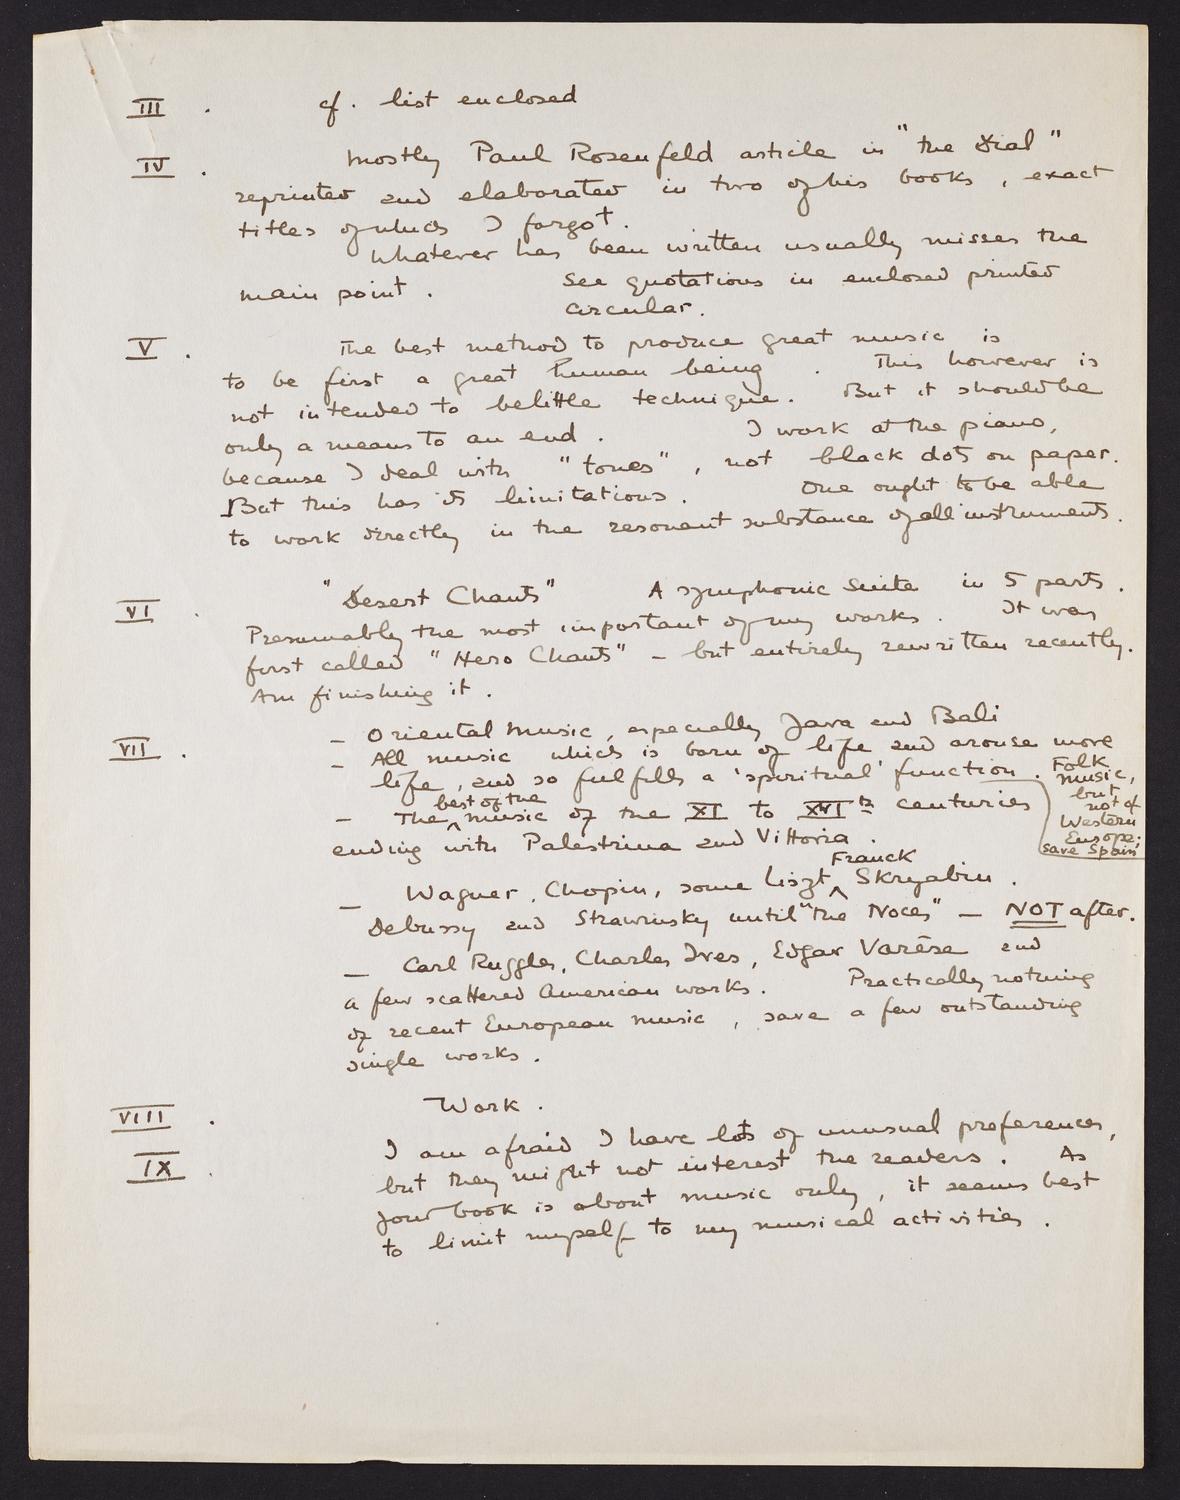 III . cf. list enclosed
IV . Mostly Paul Rosenfeld article in "the Dial"
reprinted and elaborated in two of his books, exact
titles of which I forgot.
Whatever has been written usually misses the
main point. See quotations in enclosed printed
circular.
V . The best method to produce great music is
to be first a great human being. This however is
not intended to belittle technique. But it should be
only a means to an end. I work at the piano,
because I deal with "tones", not black dots on paper.
But this has its limitations. One ought to be able
to work directly in the resonant substance of all instruments.
VI . "Desert Chants" A symphonic suite in 5 parts.
Presumably the most important of my works. It was
first called "Hero Chants" - but entirely rewritten recently.
Am finishing it.
VII . - Oriental Music, especially Java and Bali
- All music which is born of life and arouse more
life, and so fulfills a 'spiritual' function. Folk
music,
but
not of
Western
Europe;
save Spain
- The best of the music of the XI to XVIth centuries
ending with Palestrina and Vittoria.
- Wagner, Chopin, some Liszt Franck Skryabin.
Debussy and Strawinsky until "the Noces" - NOT after.
- Carl Ruggles, Charles Ives, Edgar Varèse and
a few scattered American works. Practically nothing
of recent European music, save a few outstanding
single works.
VIII . Work.
IX . I am afraid I have lots of unusual preferences,
but they might not interest the readers. As
your book is about music only, it seems best
to limit myself to my musical activities.